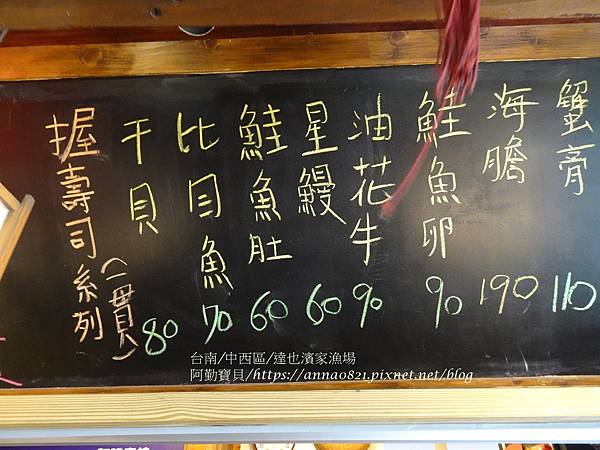 握壽司系列(一貫)
干貝 80
比目魚 70
鮭魚肚 60
星鰻 60
油花牛 90
鮭魚卵 90
海膽 190
蟹膏 110
台南/中西區/達也濱家漁場
阿勤寶貝/https://anna0821.pixnet.net/blog